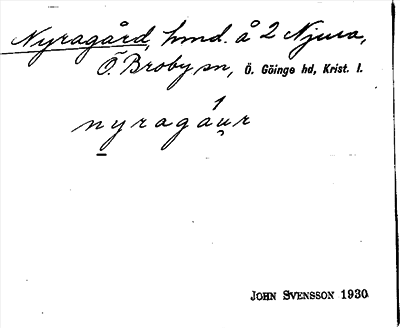 Nyragård, hmd. å 2 Njura,
Ö. Broby sn, Ö. Göinge hd, Krist. l.
nyragáu̯r
JOHN SVENSSON 1930